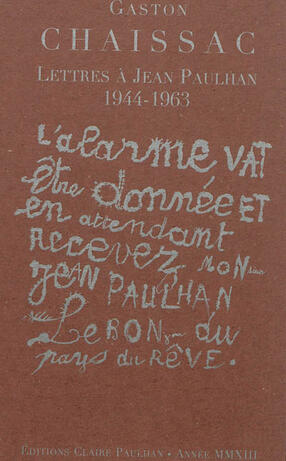 GASTON
CHAISSAC
LETTRES À JEAN PAULHAN
1944-1963
L'alarme VAT
être donnée ET
en attendant
recevez MONsieur
JEAN PAULHAN
Le BON- du
pays du RÊVE.
ÉDITIONS CLAIRE PAULHAN • ANNÉE MMXIII